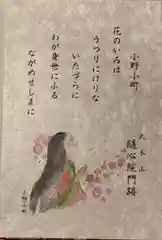 小野小町
花のいろは
うつりにけりな
いたづらに
わが身世にふる
ながめせしまに
大本山
隨心院門跡
小野小町